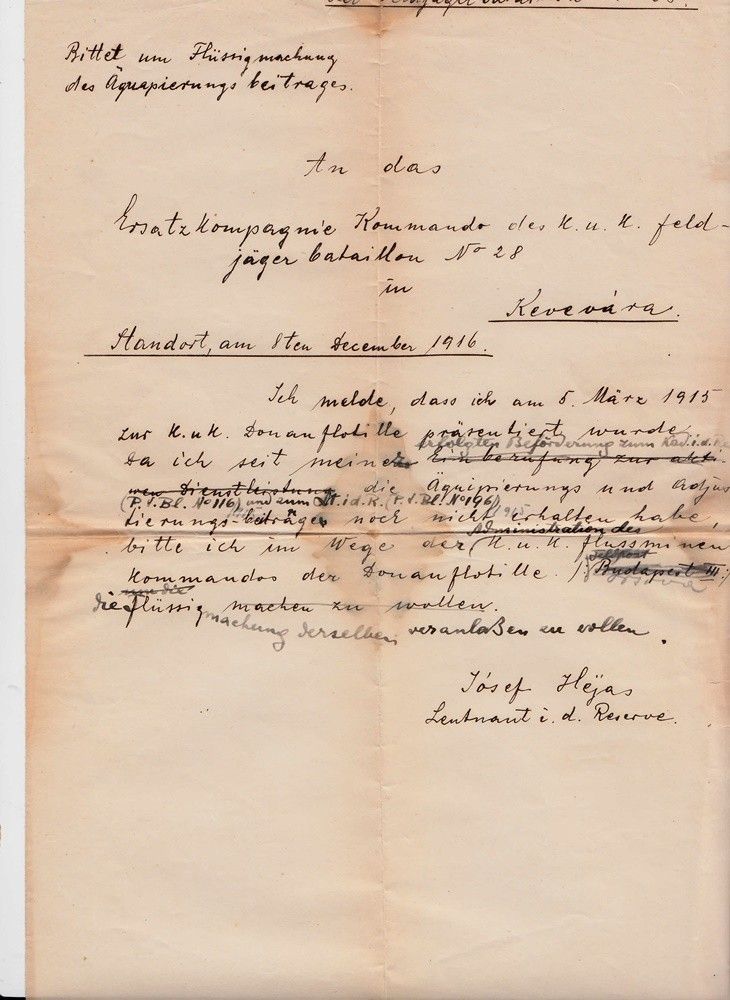 Bittet um Flüssigmachung
des Äquapierungs beitrages.
An das
Ersatzkompagnie Kommando des K. u. K. Feld-
jäger bataillon No 28
in
Kevevára.
Standort, am 8ten December 1916.
Ich melde, dass ich am 5. März 1915
zur K. u. K. Donauflotille präsentiert wurde
erfolgten Beförderung zum Kad. i. d. Re
Da ich seit meiner Einberufung zur akti-
ven Dienstleistung die Äquipierungs und Adjus
(P. V. Bl. No 116) und zum Lt. i. d. R. (P. V. Bl. No 196)
tierungs-beiträge noch nicht erhalten habe,
Administration des
bitte ich im Wege der K. u. K. flussminen
Feldpost
Kommandos der Donauflotille. (Budapest III.)
um die
die flüssig machen zu wollen.
machung derselben veranlaßen zu wollen.
Jósef Héjas
Leutnant i. d. Reserve.